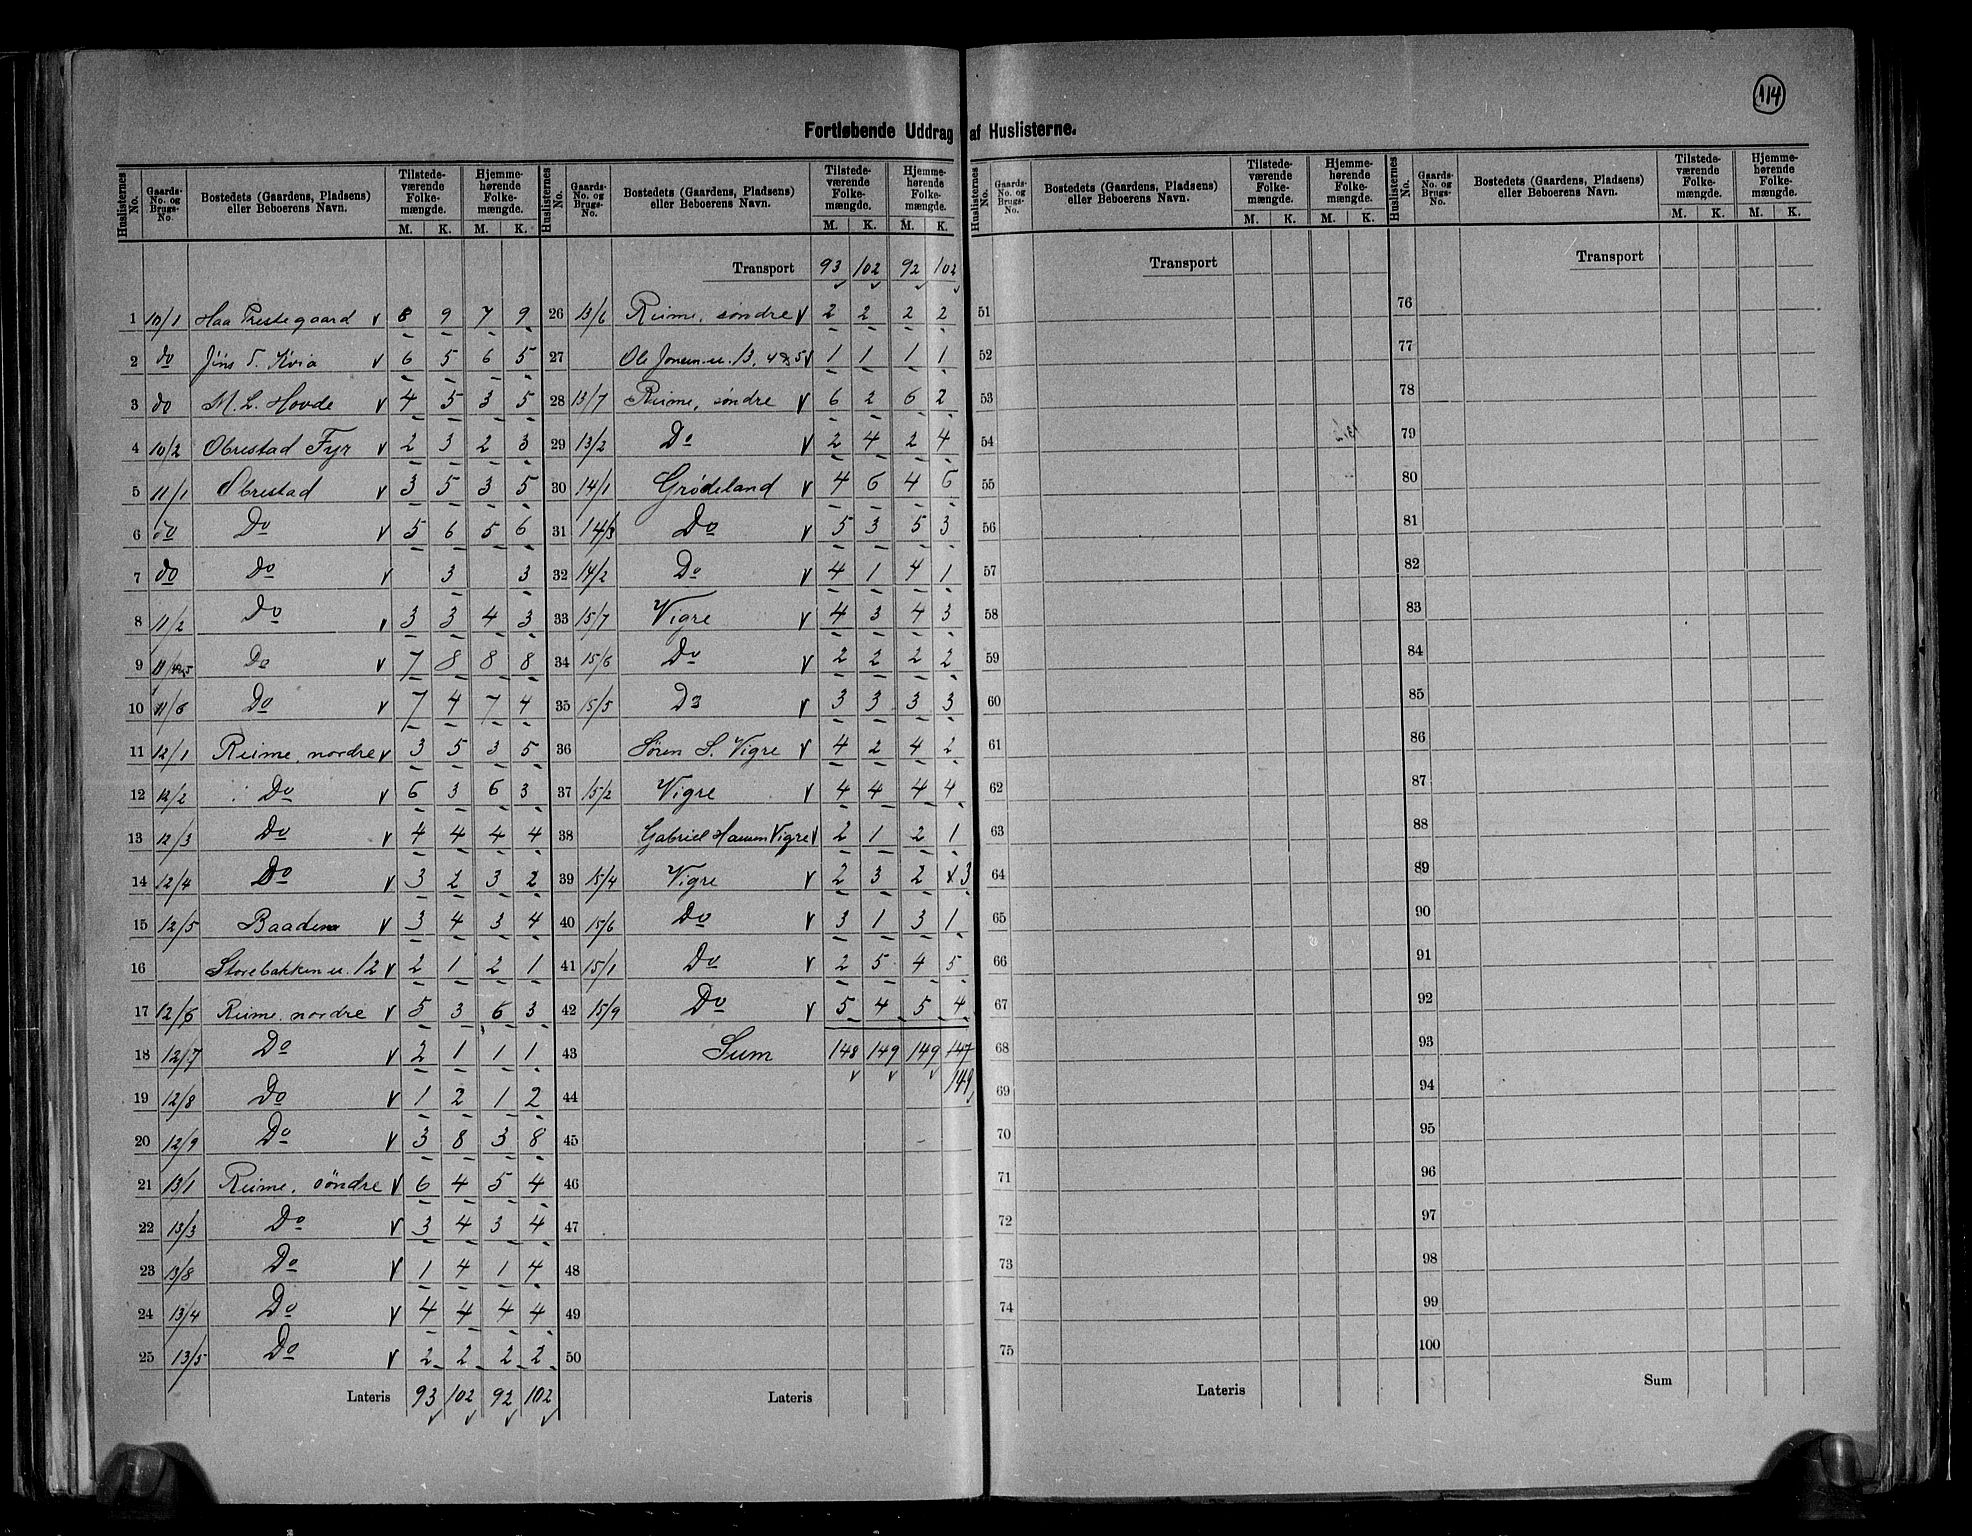 114
Fortløbende Uddrag af Huslisterne.
Huslisternes No. Gaards-No. og Brugs-No. Bostedets (Gaardens, Pladsen) eller Beboerens Navn. Tilstedeværende Folkemængde. M. K. Hjemmehørende Folkemængde. M. K.
1 10/1 Haa Prestegaard v 8 9 7 9
2 do Jöns T. Kvia v 6 5 6 5
3 do M. L. Hovde v 4 5 3 5
4 10/2 Obrestad Fyr v 2 3 2 3
5 11/1 Obrestad v 3 5 3 5
6 do Do v 5 6 5 6
7 do Do v 3 3
8 11/2 Do v 3 3 4 3
9 11/4&5 Do v 7 8 8 8
10 11/6 Do v 7 4 7 4
11 12/1 Reime, nordre v 3 5 3 5
12 12/2 Do v 6 3 6 3
13 12/3 Do v 4 4 4 4
14 12/4 Do v 3 2 3 2
15 12/5 Baadene v 3 4 3 4
16 Storebakken u. 12 v 2 1 2 1
17 12/6 Reime, nordre v 5 3 6 3
18 12/7 Do v 2 1 1 1
19 12/8 Do v 1 2 1 2
20 12/9 Do v 3 8 3 8
21 13/1 Reime, söndre v 6 4 5 4
22 13/3 Do v 3 4 3 4
23 13/8 Do v 1 4 1 4
24 13/4 Do v 4 4 4 4
25 13/5 Do v 2 2 2 2
Lateris 93 102 92 102
Huslisternes No. Gaards-No. og Brugs-No. Bostedets (Gaardens, Pladsen) eller Beboerens Navn. Tilstedeværende Folkemængde. M. K. Hjemmehørende Folkemængde. M. K.
Transport 93 102 92 102
26 13/6 Reime, söndre v 2 2 2 2
27 Ole Jonsen u. 13, 4&5 v 1 1 1 1
28 13/7 Reime, söndre v 6 2 6 2
29 13/2 Do v 2 4 2 4
30 14/1 Grødeland v 4 6 4 6
31 14/3 Do v 5 3 5 3
32 14/2 Do v 4 1 4 1
33 15/7 Vigre v 4 3 4 3
34 15/6 Do v 2 2 2 2
35 15/5 Do v 3 3 3 3
36 Sören S. Vigre v 4 2 4 2
37 15/2 Vigre v 4 4 4 4
38 Gabriel Hansen Vigre v 2 1 2 1
39 15/4 Vigre v 2 3 2 3
40 15/6 Do v 3 1 3 1
41 15/1 Do v 2 5 4 5
42 15/9 Do v 5 4 5 4
43 Sum 148 149 149 147
44 149
45
46
47
48
49
50
Lateris
Huslisternes No. Gaards-No. og Brugs-No. Bostedets (Gaardens, Pladsen) eller Beboerens Navn. Tilstede-værende Folke-mængde. M. K. Hjemme-hørende Folke-mængde. M. K.
Transport
51
52
53
54
55
56
57
58
59
60
61
62
63
64
65
66
67
68
69
70
71
72
73
74
75
Lateris
Huslisternes No. Gaards-No. og Brugs-No. Bostedets (Gaardens, Pladsen) eller Beboerens Navn. Tilstede-værende Folke-mængde. M. K. Hjemme-hørende Folke-mængde. M. K.
Transport
76
77
78
79
80
81
82
83
84
85
86
87
88
89
90
91
92
93
94
95
96
97
98
99
100
Sum